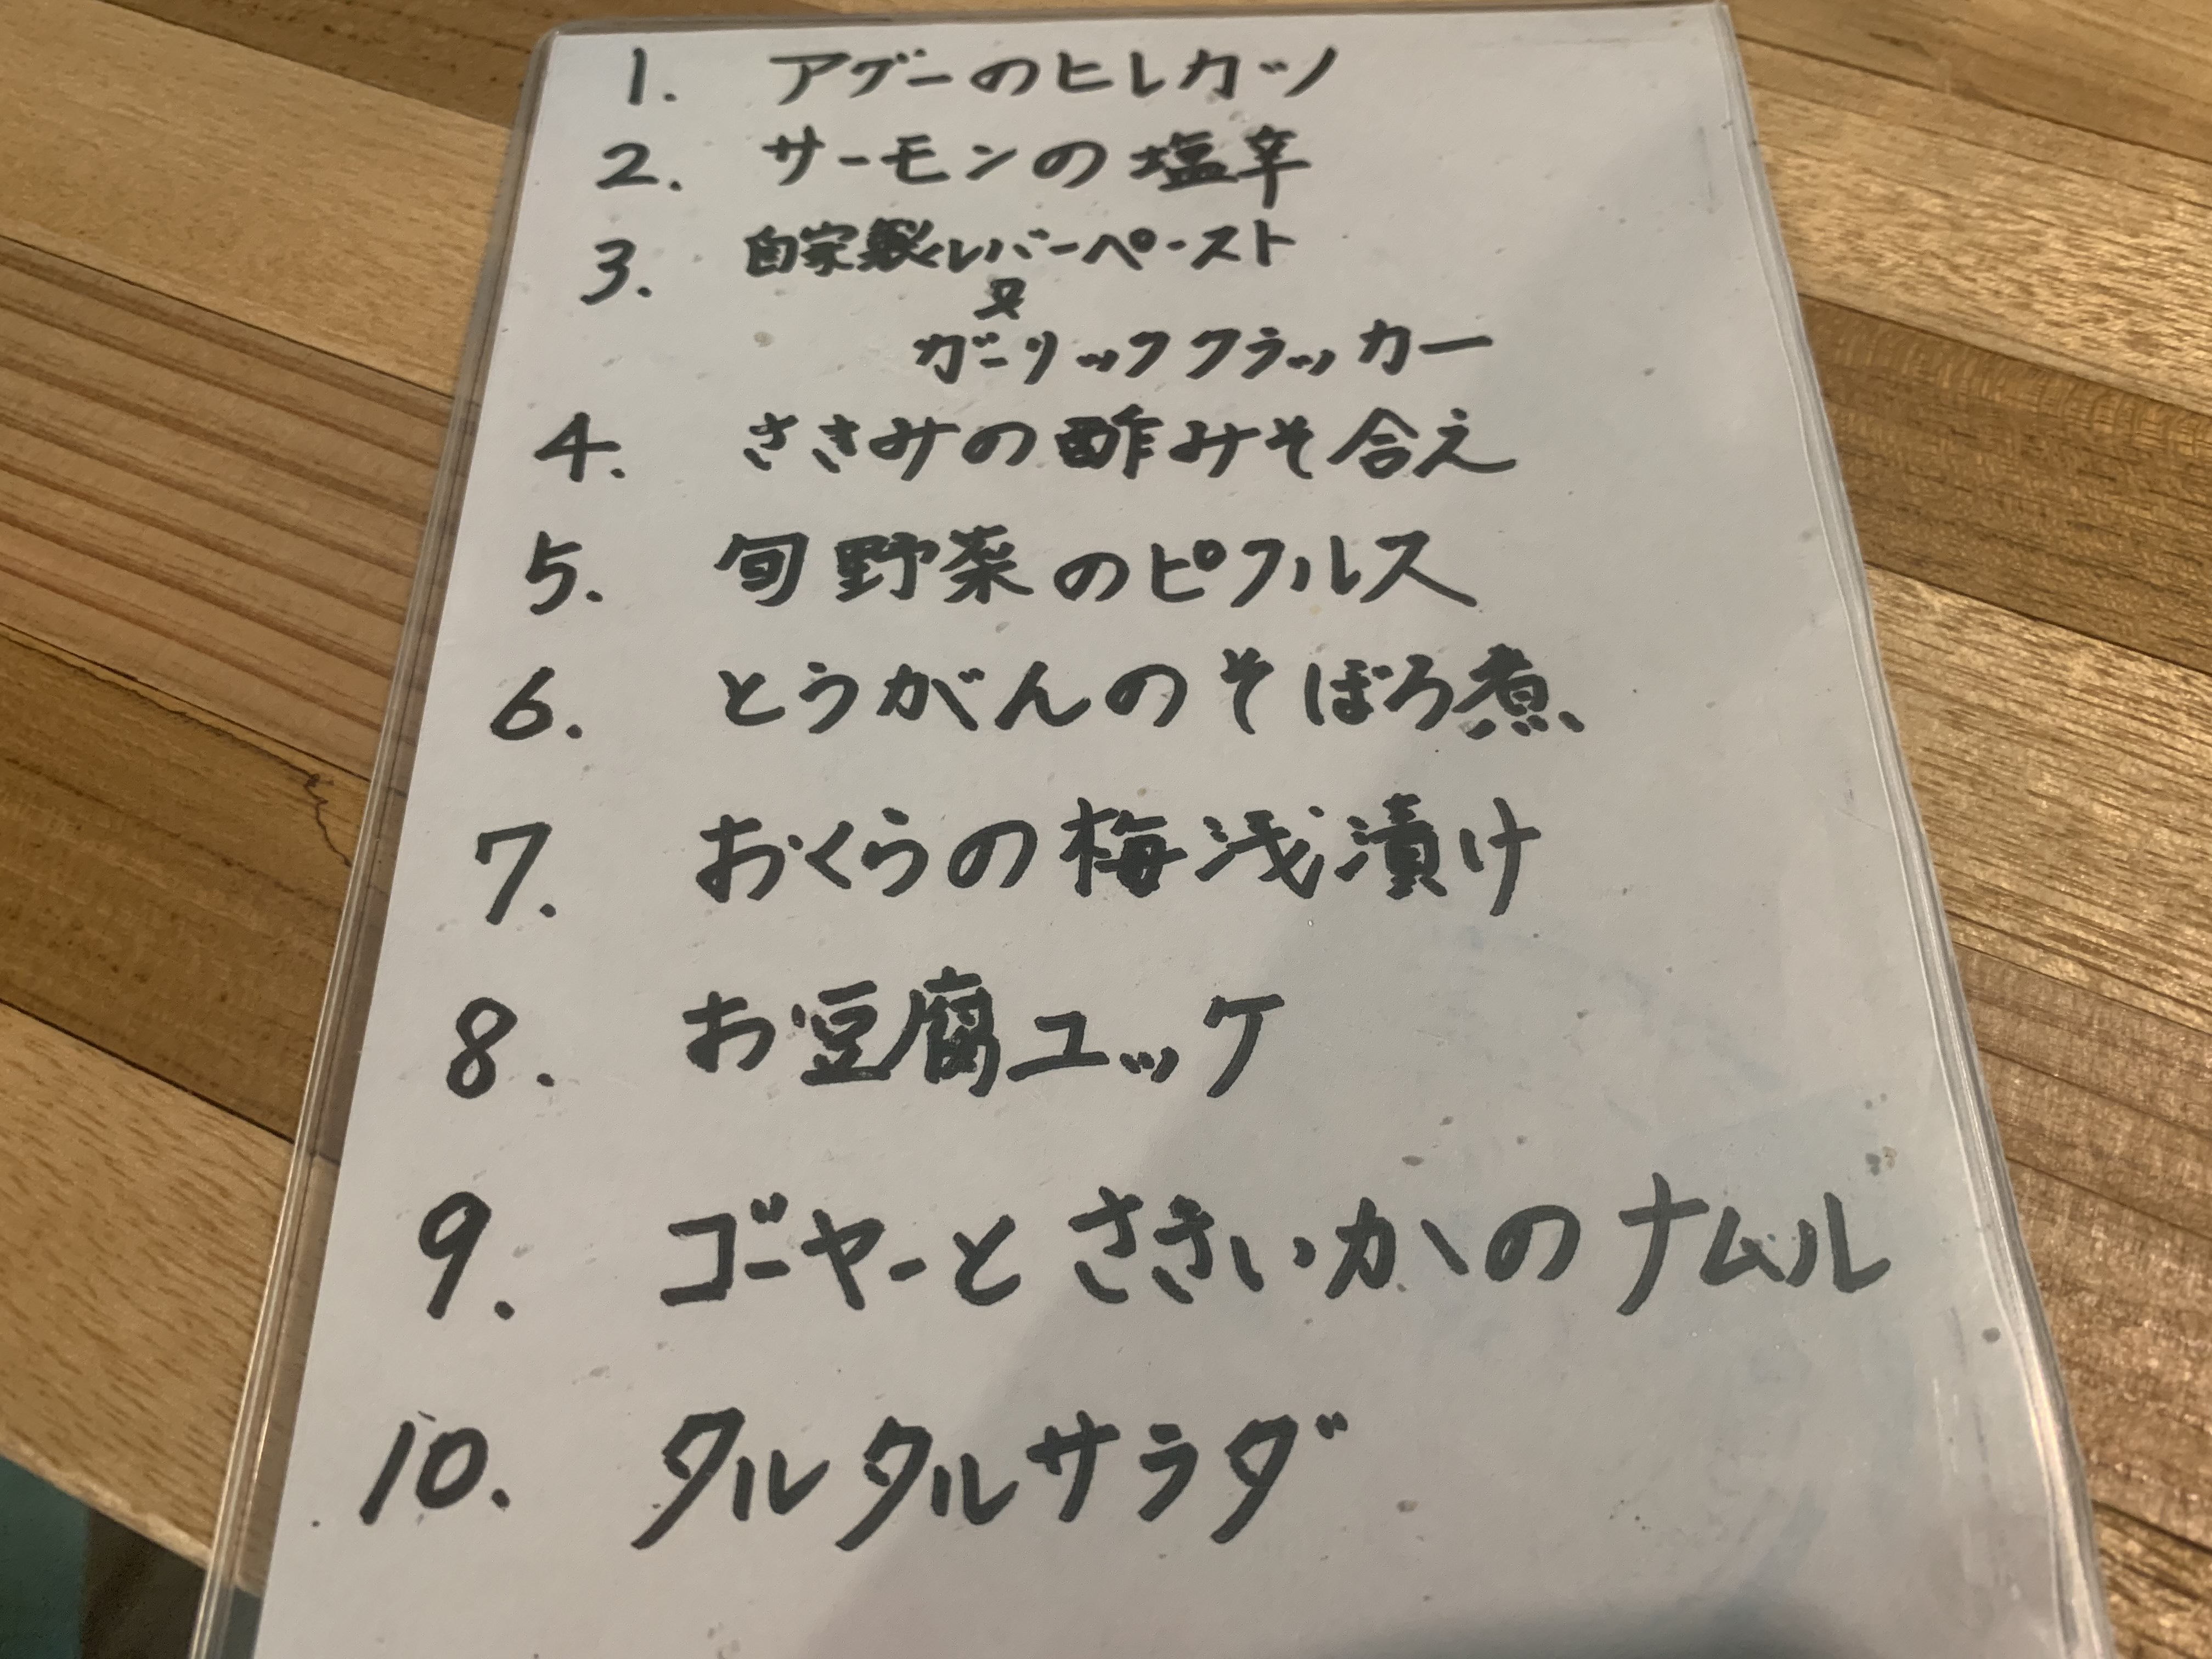 1. アグーのヒレカツ
2. サーモンの塩辛
3. 自家製レバーペースト
又
ガーリッククラッカー
4. ささみの酢みそ合え
5. 旬野菜のピクルス
6. とうがんのそぼろ煮
7. おくらの梅浅漬け
8. お豆腐ユッケ
9. ゴーヤーとさきいかのナムル
10. タルタルサラダ